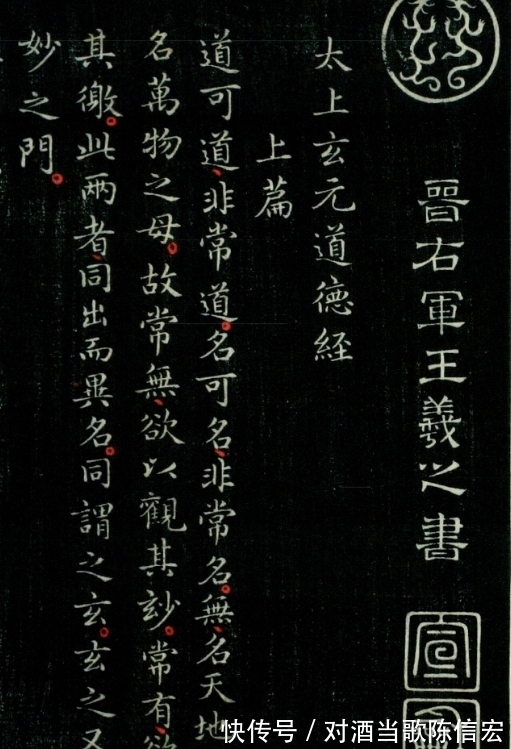 晉右軍王羲之書
宣
太上玄元道德經
上篇
道可道、非常道。名可名、非常名。無、名天地
名萬物之母。故常無、欲以觀其玅。常有、欲
其徼。此兩者、同出而異名。同謂之玄。玄之又
妙之門。
快传号 / 对酒当歌陈信宏